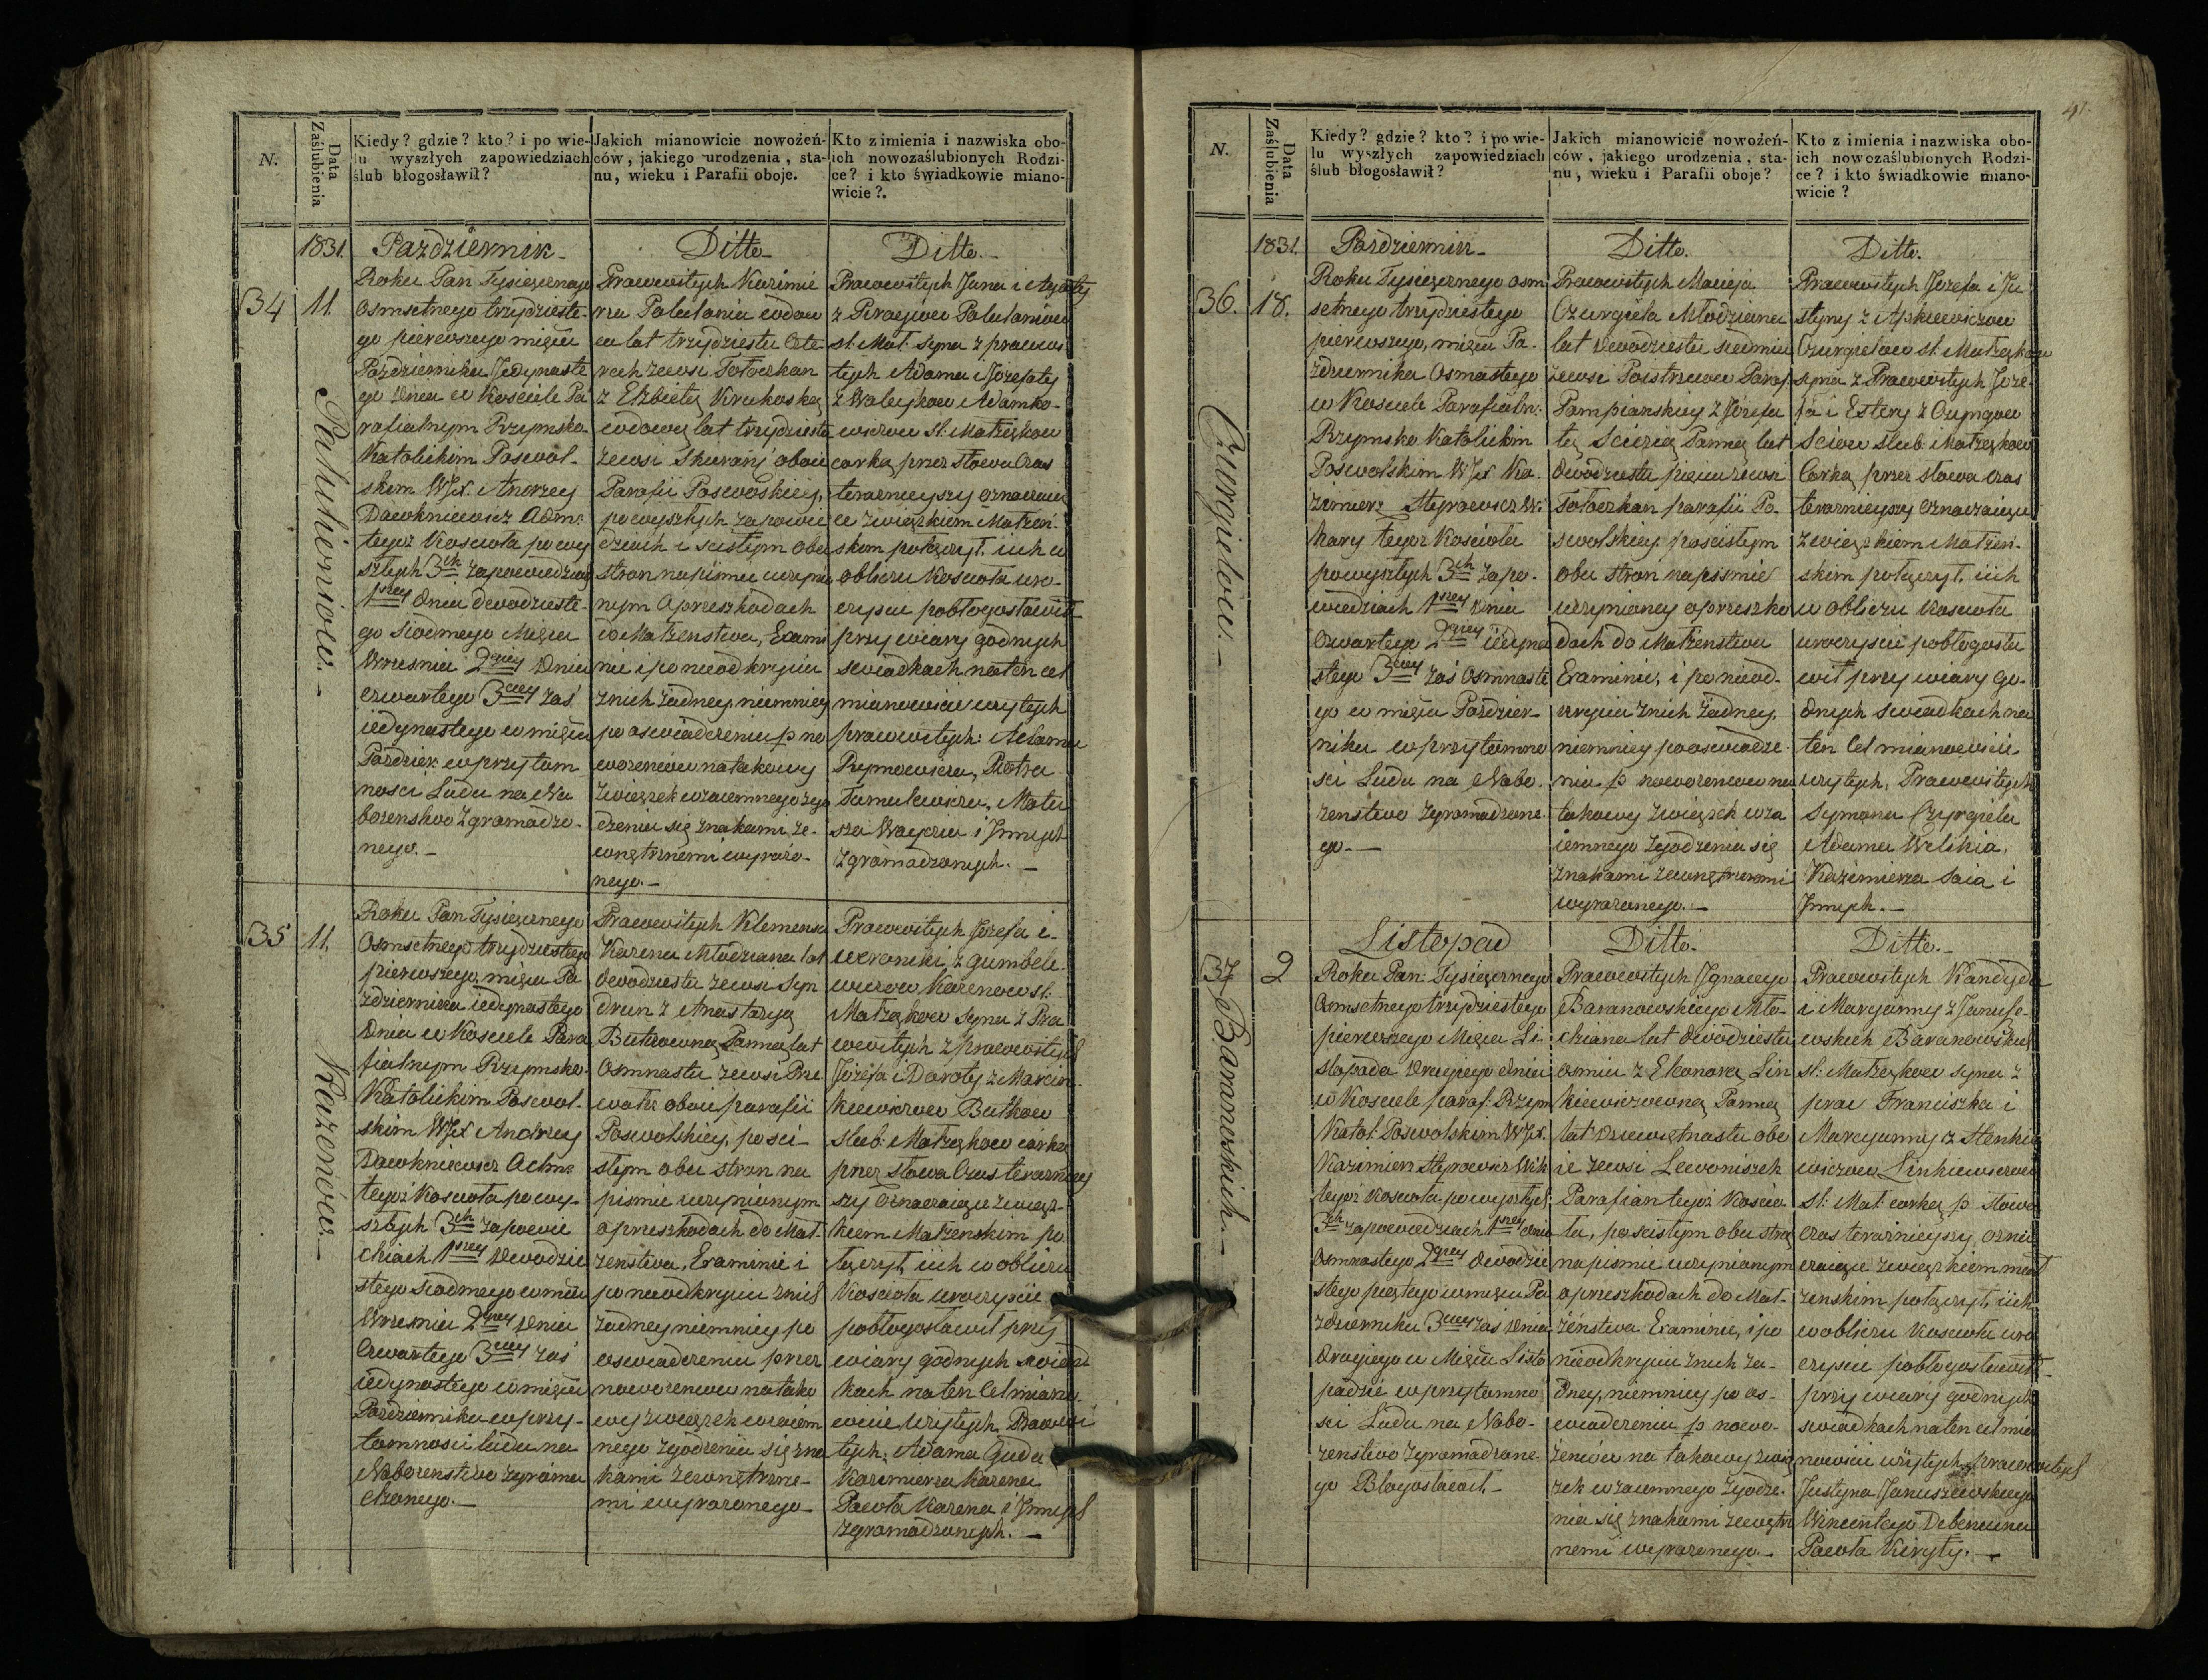 N.
Data Zaślubienia
Kiedy? gdzie? kto? i po wie-
lu wyszłych zapowiedziach
ślub błogosławił?
Jakich mianowicie nowożeń-
ców, jakiego urodzenia, sta-
nu, wieku i Parafii oboje.
Kto z imienia i nazwiska obo-
ich nowozaślubionych Rodzi-
ce? i kto świadkowie miano-
wicie?.
1831. Pazdziernik
Ditto
Ditto.
34
11
Roku Pan Tysięcznego
osmsetnego trzydzieste-
go pierwszego mięsca
Pazdziernika Jedynaste
go dnia w Kosciele Pa
rafialnym Rzymsko
Katolickim Poswol-
skim WJX. Andrzey
Dawkniewicz Adm:
tegoż Koscioła po wy
szłych 3ch zapowiedziach
1szey dnia dwodzieste-
go siodmego Mięsca
Wrzesnia 2giey dnia
czwartego 3ciey zaś
iedynastego w mięscu
Pazdzier: w przytom
nosci Ludu na Na
bozenstwo zgromadzo-
nego.
Prawowitych Kazimie
rza Palulania wdow
ca lat trzydziestu czte-
rech zewsi Tołoczkan
z Elżbietą Krukoską
wdową lat trzydziestu
zewsi Skurany oboie
Parafii Poswolskiey,
po wyszłych zapowie
dziach i scisłym obu
stron na pismie uczynio
nym o przeszkodach
do Małzenstwa, Exami
nie i po nieodkryciu
znich żadney, niemniey
po oswiadczeniu p no
wozencow na takowy
zwiąsek wzaiemnego zgo
dzenia się znakami ze-
wnętrznemi wyrazo-
nego.
Prawowitych Jana i Agaty
z Puraycow Palulaniow
sł. Mał. syna z prawow
tych Adama i Jozefaty
z Waleykow Adamko-
wiczow sł: Małżąkow
corką, przez słowa czas
teraznieyszy oznaczaią
ce związkiem Małżeń-
skim połączył, iich w
obliczu Kosciola uro-
czyscie pobłogosławił
przy wiary godnych
swiadkach na ten cel
mianowicie uzytych
prawowitych: Adama
Rymowicza, Piotra
Tamulewicza, Mate
sza Wayczu i Innych
zgromadzonych.
Palulioniow.
35
11.
Roku Pan Tysięcznego
osmsetnego trzydziestego
pierwszego, mięsca Pa
zdziernika iedynastego
dnia w Kosciele Para
fialnym Rzymsko
Katolickim Poswol-
skim WJX Andrzey
Dawkniewicz Adm:
tegoż Kosciola po wy-
szłych 3ch zapowie
dziach 1szey dwodzie
stego siodmego w miescu
Wrzesnia 2giey dnia
Czwartego 3ciey zaś
iedynastego w mięscu
Pazdziernika w przy-
tomnosci ludu na
Nabozenstwo zgroma
dzonego.
Prawowitych Klemensa
Karena Młodziana lat
dwodziestu zewsi Syn
drun z Anastazyą
Butkowną Panną lat
osmnastu zewsi Prze
wałk oboie parafii
Poswolskiey, po sci-
słym obu stron na
pismie uczynionym
o przeszkodach do Mał-
zenstwa, Examinie i
po nieodkryciu znich
żadney niemniey po
oswiadczeniu przez
nowozencow na tako
wy zwiąsek wzaiem
nego zgodzenia się zna
kami zewnętrzne-
mi wyrazonego
Prawowitych Jozefa i
Weroniki z Gumbele
wiczow Karenow sł.
Małżąkow syna z Pra
wowitych z prawowitych
Józefa i Doroty z Marcin-
kiewiczow Butkow
slub: Małząkow corką
przez słowa Czas terazniey
szy Oznaczaiące związ-
kiem Małżenskim po
łączył, iich w obliczu
Kosciola uroczyscie
pobłogosławił przy
wiary godnych swiad
kach na ten Cel miano
wicie uzytych Prawowi
tych: Adama Guda
Kazimierza Karena
Pawła Karena i Innych
zgromadzonych.
Kazeniow.
41.
N.
Data Zaślubienia
Kiedy? gdzie? kto? i po wie-
lu wyszłych zapowiedziach
ślub błogosławił?
Jakich mianowicie nowożeń-
ców, jakiego urodzenia, sta-
nu, wieku i Parafii oboje?
Kto z imienia i nazwiska obo-
ich nowozaślubionych Rodzi-
ce? i kto świadkowie miano-
wicie?
1831. Pazdziernik
Ditto.
Ditto.
36.
18.
Roku Tysięcznego osm
setnego trzydziestego
pierwszego, mięsca Pa-
zdziernika Osmastego
w Kosciele Parafialn:
Rzymsko Katolickim
Poswolskim WJX Ka-
zimierz Stegrowicz Wi-
kary tegoz Kosciola
po wyszłych 3ch zapo-
wiedziach 1szey dnia
czwartego 2giey iedyna
stego 3ciey zaś osmnaste
go w mięscu Pazdzier-
niku w przytomno
sci Ludu na Nabo-
zenstwo zgromadzone-
go.
Prawowitych Macieja
Czurgiela Młodziana
lat dwodziestu siedmiu
zewsi Poistrzewo Paraf:
Pompianskiey z Józefa
tą Sciezią Panną lat
dwodziestu pięciu zewsi
Tołoczkan parafii Po-
swolskiey. po scisłym
obu stron na pismie
uczynioney o przeszko
dach do Małżenstwa
Examinie, i po nieod-
kryciu znich żadney,
niemniey po oswiadcze-
niu p nowozencow na
takowy zwiąsek wza
iemnego zgodzenia się
znakami zewnętrznemi
wyrazonego.
Prawowitych Jozefa i Ju
styny z Apkiewiczow
Czurgielow sł. Małżąkow
syna z Prawowitych Joze-
fa i Estery z Ouyngow
Sciow slub: Małżąkow
Corką, przez słowa Czas
teraznieyszy oznaczaiące
związkiem Małżen-
skim połączył, iich
w obliczu Kosciola
uroczyscie pobłogosła
wił przy wiary go-
dnych swiadkach na
ten Cel mianowicie
uzytych, Prawowitych
Symona Czurgiela
Adama Welikia,
Kazimierza Saia i
Innych.
Czurgielow.
Listopad
Ditto.
Ditto.
37
2
Roku Pan: Tysięcznego
osmsetnego trzydziestego
pierwszego Mięsca Li-
stopada drugiego dnia
w Kosciele paraf: Rzym
Katol: Poswolskim WJX.
Kazimierz Stegrowicz Wik
tegoż Kosciola po wyszłych
3ch zapowiedziach 1szey dnia
osmnastego 2giey dwodzie
stego piątego w mięscu Pa
zdzierniku 3ciey zaś dnia
drugiego w Mięscu Listo
padzie w przytomno
sci Ludu na Nabo-
zenstwo zgromadzone-
go Błogosławił.
Prawowitych Jgnacego
Baranowskiego Mło-
dziana lat dwodziestu
osmiu z Eleonorą Lin
kiewiczowną Panną
lat dziewiętnastu obo
ie zewsi Lewoniszek
Parafian tegoż Koscio-
ła, po scisłym obu stron
na pismie uczynionym
o przeszkodach do Mał-
żeństwa Examinie, i po
nieodkryciu znich ża-
dney, niemniey po os-
wiadczeniu p nowo-
żeńców na takowy zwią
zek wzaiemnego zgodze-
nia się znakami zewnętrz
nemi wyrazonego.
Prawowitych Kandyda
i Maryanny z Janusze-
wskich Baranowskich
sł: Małżąkow syna z
praw Franciszka i
Maryanny z Stenkie
wiczow Linkiewiczow
sł: Mał corką p słowa
czas teraznieyszy ozna
czaiące związkiem mał
żenskim połączył, iich
w obliczu Kosciola uro
czyscie pobłogosławił
przy wiary godnych
swiadkach na ten cel mia
nowicie użytych prawowitych
Justyna Januszewskiego
Wincentego Debenuna
Pawła Kiryty.
Baranowskich.